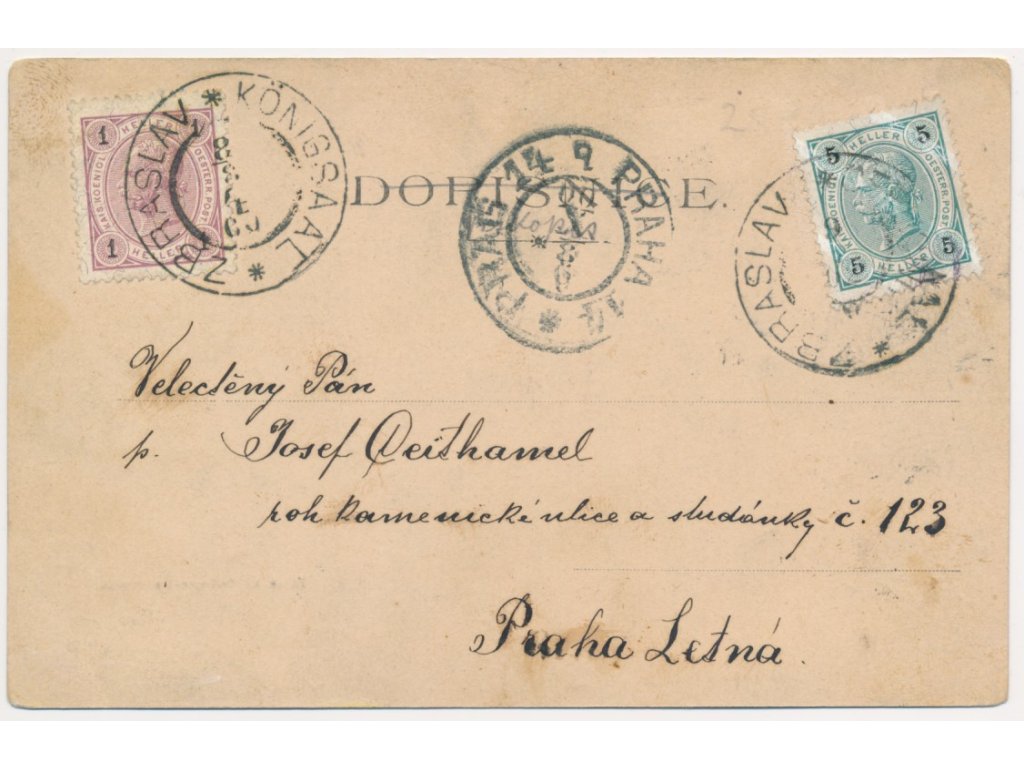 1 1 1
HELLER
KAIS. KOENIGL. OESTERR. POST
ZBRASLAV * KÖNIGSAAL *
DOPISNICE.
PRAG 14 * PRAHA 14
5 5 5 5
HELLER HELLER
KAIS. KOENIGL. OESTERR. POST
ZBRASLAV *
Velectěný Pán
p. Josef Deithamel
roh Kamenické ulice a studánky č. 123
Praha Letná.